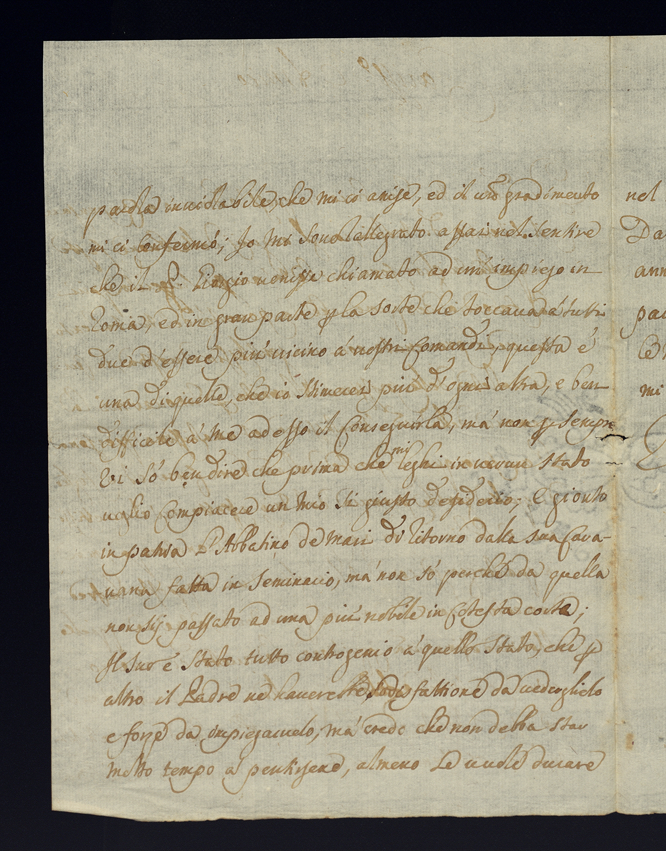 parola inviolabile, che mi ci unisse, ed il gradimento
mi ci confermò; Io mi sono rallegrato assai nel sentire
che il P. venisse chiamato ad un impiego in
Roma, ed in gran parte p la sorte che toccava à tutti
due d'essere più vicino à nostri Comandi, questa è
una di quelle, che io stimerei più d'ogni altra, e ben
difficile à me adesso il conseguirla, mà non p sempre
Vi sò ben dire che prima che mi leghi in verun stato
voglio compiacere un mio sì giusto desiderio; È gionto
in patria l'Abbatino de Mari di ritorno dalla sua Cara-
vana fatta in Seminario, mà non sò perche da quella
non sij passato ad una più nobile in cotesta corte;
Il suo è stato tutto controgenio à quello stato, che p
altro il Padre ne haverebbe sodisfattione da vederglielo
e forse da impiegarvelo, mà crede che non debba star
molto tempo à pentirsene, almeno se vuole durare
nel
Da
ann
pa
mi